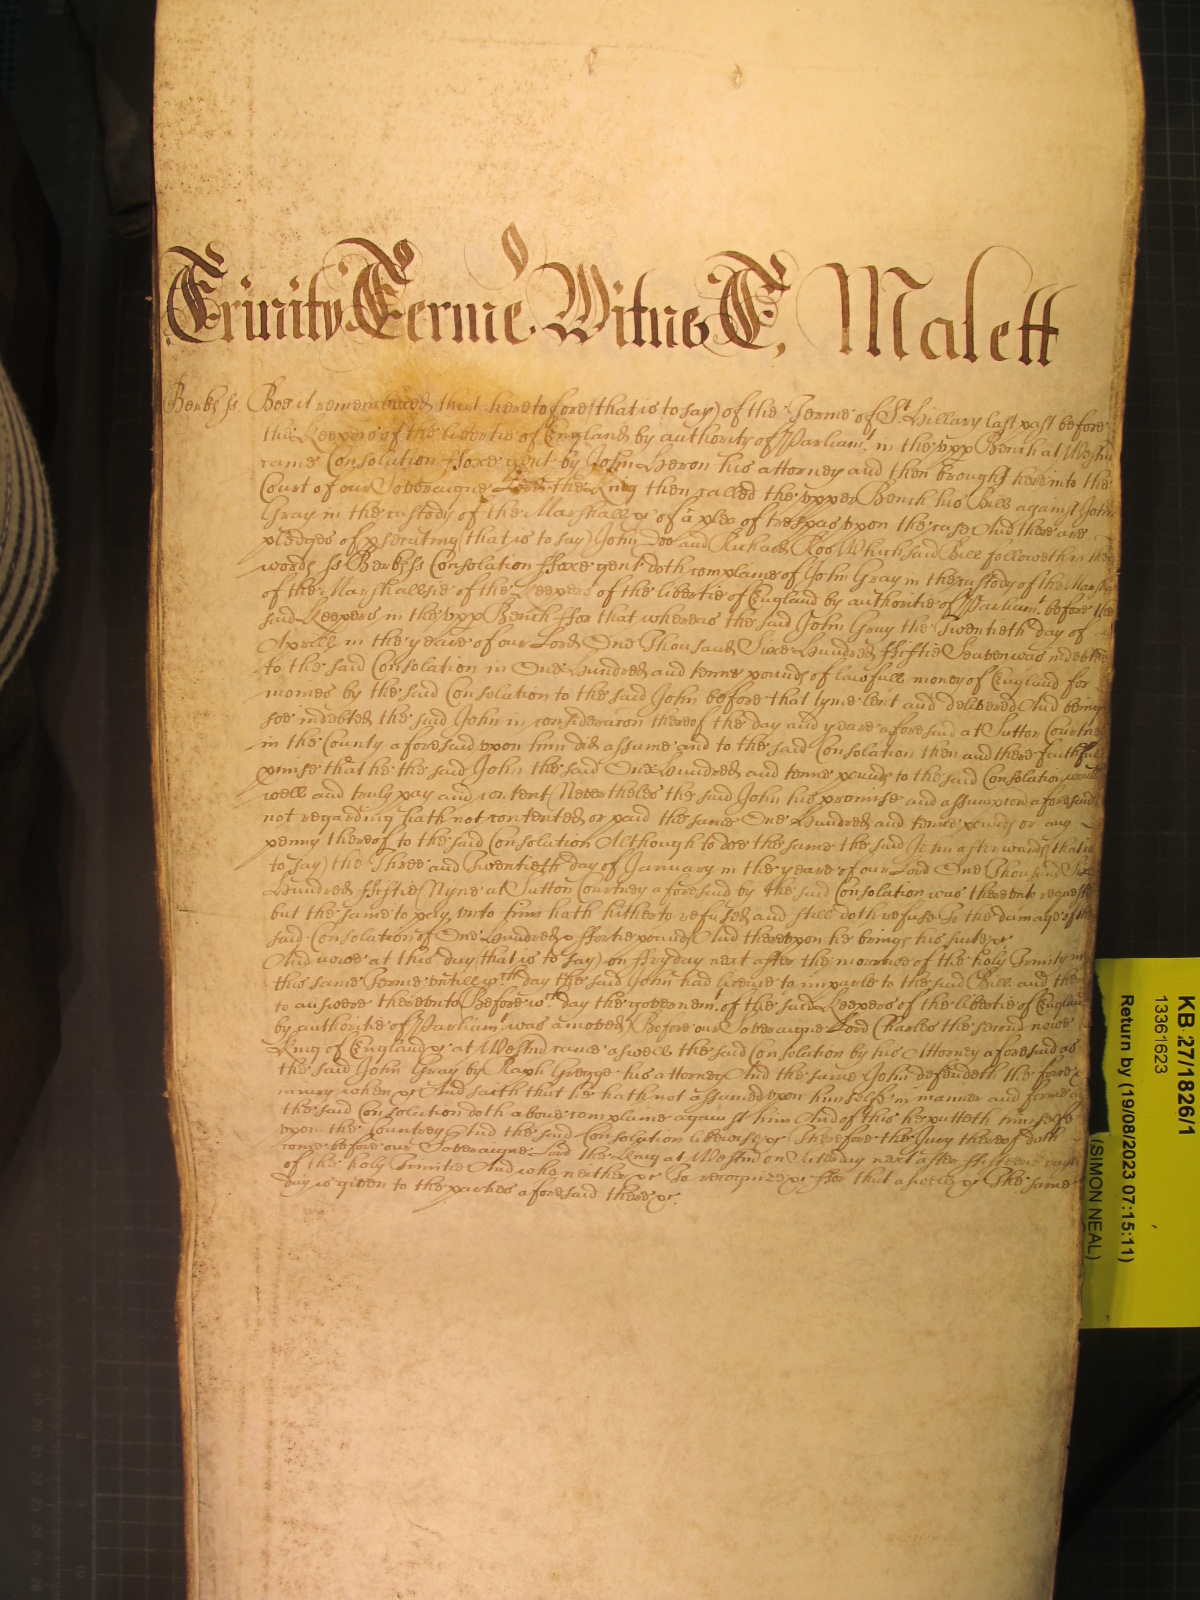 Trinity Terme Witnes T, Malett
Berks ss. Bee it remembred that heretofore (that is to say) of the Terme of St Hillary last past before
the Keepers of the libertie of England by authority of Parliamt. in the upp Bench at Westmr
came Consolation ffoxe gent by John Heron his attorney and then brought here into the
Court of our Soveraigne Lord the King then called the upper Bench his Bill against John
Gray in the custody of the Marshall &c of a plea of trespas upon the case And there are
pledges of psecuting (that is to say) John Doo and Richard Roo Which said Bill followeth in thes
words ss Berks ss Consolation ffoxe gent doth complaine of John Gray in the custody of the Marshall
of the Marshallsie of the Keepers of the libertie of England by authoritie of Parliamt. before the
said Keepers in the upp Bench ffor that whereas the said John Gray the Twentieth day of
Aprill in the yeare of our Lord One Thousand Sixe Hundred ffiftie Seaven was indebted
to the said Consolation in One Hundred and tenne pounds of lawfull money of England for
monies by the said Consolation to the said John before that tyme lent and delivered And being
soe indebted the said John in consideracon thereof the day and yeare aforesaid at Sutton Courtney
in the County aforesaid upon him did assume and to the said Consolation then and there faithfully
pmise that he the said John the said One Hundred and tenne pounds to the said Consolation would
well and truly pay and content Neverthelес the said John his promise and assumpcon aforesaid
not regarding hath not contented or paid the same One Hundred and tenne pounds or any
penny thereof to the said Consolation Although to doe the same the said John afterwards (that is
to say) the Three and Twentieth day of January in the yeare of our Lord One Thousand Sixe
Hundred ffiftie Nyne at Sutton Courtney aforesaid by the said Consolation was thereunto requested
but the same to pay unto him hath hitherto refused and still doth refuse To the damage of the
said Consolation of One Hundred & ffortie pounds And thereupon he brings his suite &c
And nowe at this day (that is to say) on ffryday next after the morrowe of the holy Trinity in
this same Terme untill wch. day the said John had license to imparle to the said Bill and then
to answere thereunto Before wch. day the governemt. of the said Keepers of the libertie of England
by authoritie of Parliamt. was amoved Before our Soveraigne Lord Charles the second nowe
King of England &c at Westmr came aswell the said Consolation by his Attorney aforesaid as
the said John Gray by Ralph George his attorney And the same John defendeth the force &
iniury when &c And saith that he hath not assumed upon himselfe in manner and forme as
the said Consolation doth above complaine against him And of this he putteth himselfe
upon the Countrey And the said Consolation likewise &c Therefore the Jury thereof doth
come before our Soveraigne Lord the King at Westmr on Saterday next after ffifteene dayes
of the holy Trinitie And who neither &c To recognize &c ffor that aswell &c The same
day is given to the parties aforesaid there &c.
KB 27/1826/1
13361623
Return by (19/08/2023 07:15:11)
(SIMON NEAL)